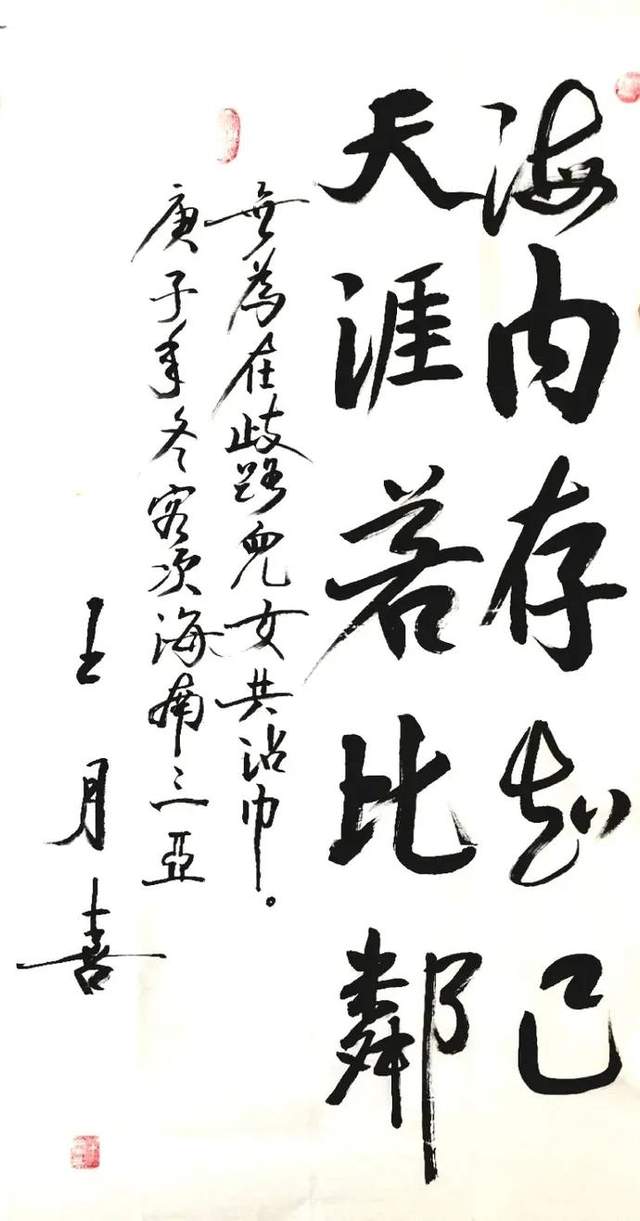 海内存知己
天涯若比鄰
無為在歧路兒女共沾巾。
庚子年冬客次海南三亞
王月喜